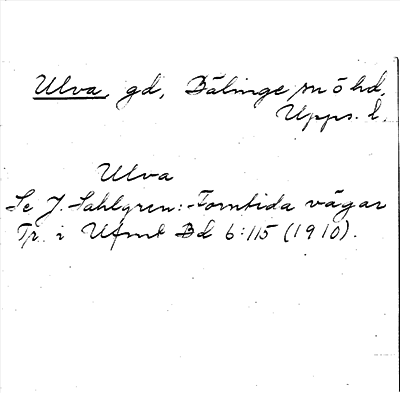 Ulva, gd, Bälinge sn o hd,
Upps. l.
Ulva
Se J. Sahlgren: Forntida vägar
Tr. i Ufmt Bd 6:115 (1910).